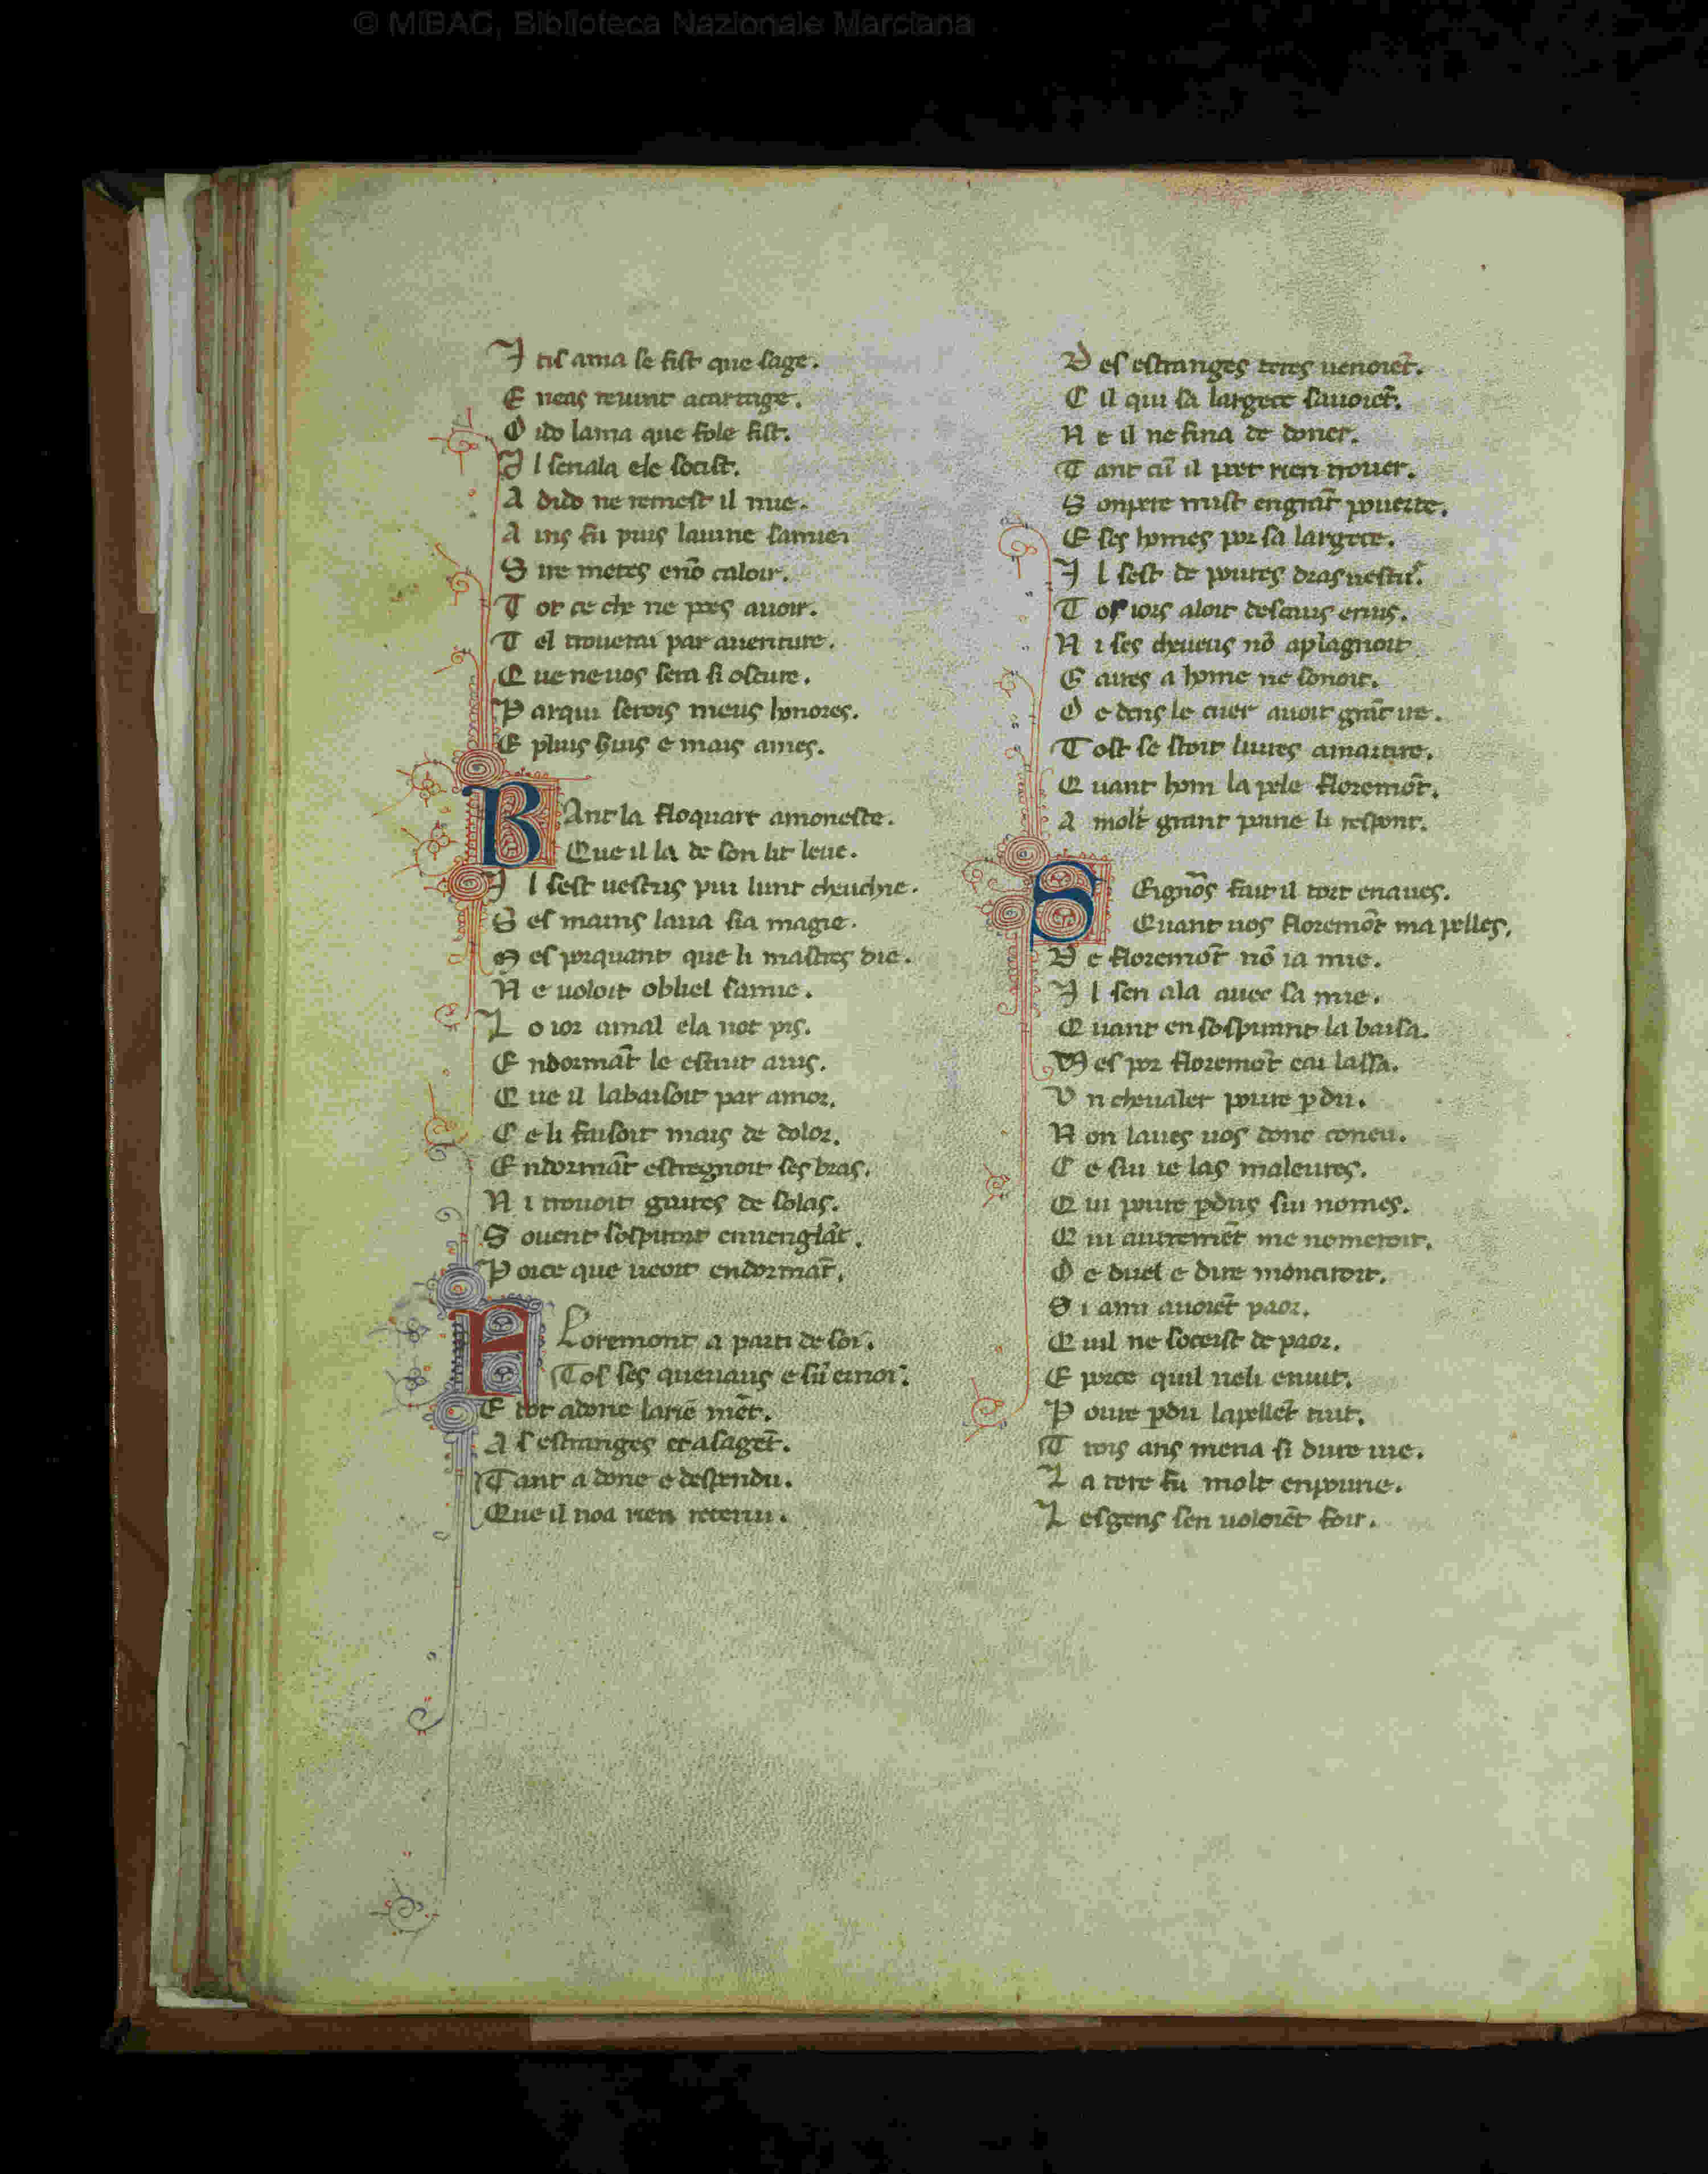 © MiBAC, Biblioteca Nazionale Marciana
I tis ama se fist que sage.
E neas reuint acartage.
D ido lama que fole fist.
I l senala ele socist.
A dido ne remest il mie.
A ins fu puis lauine samie
S ire metes enō caloir.
T ot ce che ne poes auoir.
T el trouerai par auenture.
Q ue neuos sera si oscure.
P arqui serois meus honores.
E pluis huis e mais ames.
B Ant la floquart amoneste.
Que il la de son lit leue.
I l sest uestus pui lunt chauchie.
S es mains laua sia magie.
M es porquant que li mastres die.
N e uoloit obliel samie.
L o ior amal ela not pis.
E ndormāt le estuit auis.
Q ue il labaisoit par amor.
C e li faisoit mais de dolor.
E ndormāt estregnoit ses bras.
N i trouoit gaires de solas.
S ouent sospiroit enuenglāt.
P orce que ueoit endormāt.
F Loremont a parti de soi.
Tos ses queuaus e sū ernoi.
E tot adone larie mēt.
A s estranges et asagēt.
Tant a done e despendu.
Que il noa rien retenu.
D es estranges teres uenoiēt.
C il qui sa largece sauoiēt.
N e il ne fina de doner.
T ant cū il poet rien trouer.
S onpere mist engrāt pouerte.
E ses homes por sa largece.
I l sest de poures dras uestu.
T os iors aloit descaus enus.
N i ses cheueus nō aplagnoit
G aires a home ne sonoit.
D e dens le cuer auoit grāt ire.
T ost se stoit liures amartire.
Q uant hom la pele floremōt.
A molt grant paine li respont.
S Eignōs fait il tort enaues.
Quant uos floremōt ma pelles.
D e floremōt nō ia mie.
I l sen ala auec sa mie.
Q uant en sospirant la baisa.
M es por floremōt eai lassa.
U n cheualer poure pdu.
N on laues uos donc coneu.
C e sui ie las maleures.
Q ui poure pdus sui nomes.
Q ui autremēt me nomeroit.
D e duel e dire mōnciroit.
S i ami auoiēt paor.
Q uil ne soceist de paor.
E porce quil neli enuit.
P oure pdu lapellēt tuit.
T rois ans mena si dure uie.
L a tere fu molt enpourie.
L esgens sen uoloiēt foir.